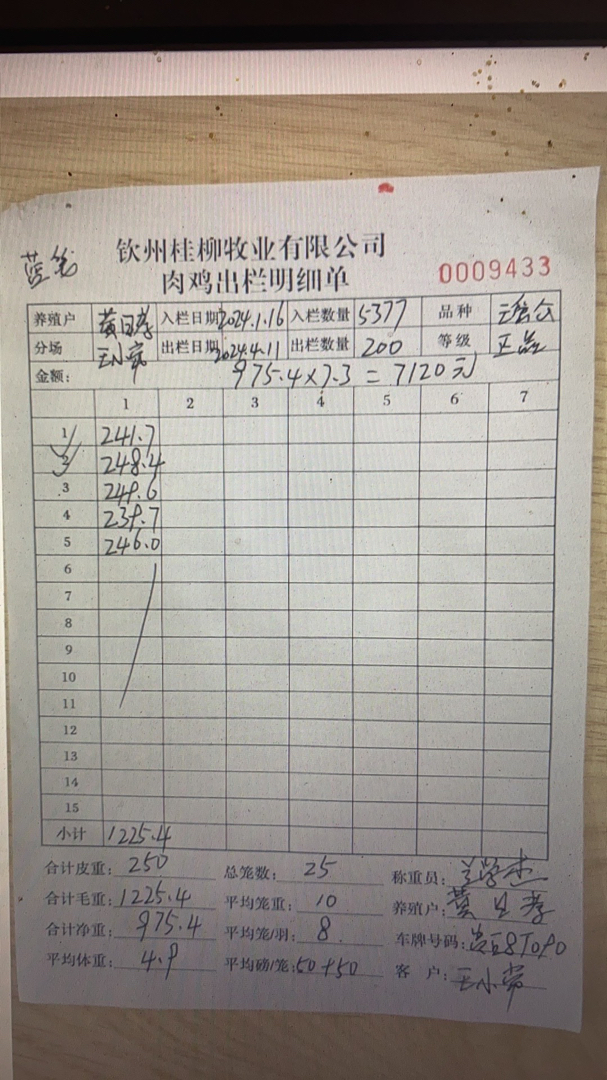 蓝笔
钦州桂柳牧业有限公司
肉鸡出栏明细单
0009433
养殖户 黄日孝 入栏日期 2024.1.16 入栏数量 5377 品种
分场 王小常 出栏日期 2024.4.11 出栏数量 200 等级 正品
金额: 975.4×7.3=7120元
1 2 3 4 5 6 7
1 241.7
2 248.4
3 249.6
4 239.7
5 246.0
6
7
8
9
10
11
12
13
14
15
小计 1225.4
合计皮重: 250 总笼数: 25 称重员:
合计毛重: 1225.4 平均笼重: 10 养殖户: 黄日孝
合计净重: 975.4 平均笼/羽: 8 车牌号码:
平均体重: 4.9 平均磅/笼: 50+50 客户: 王小常